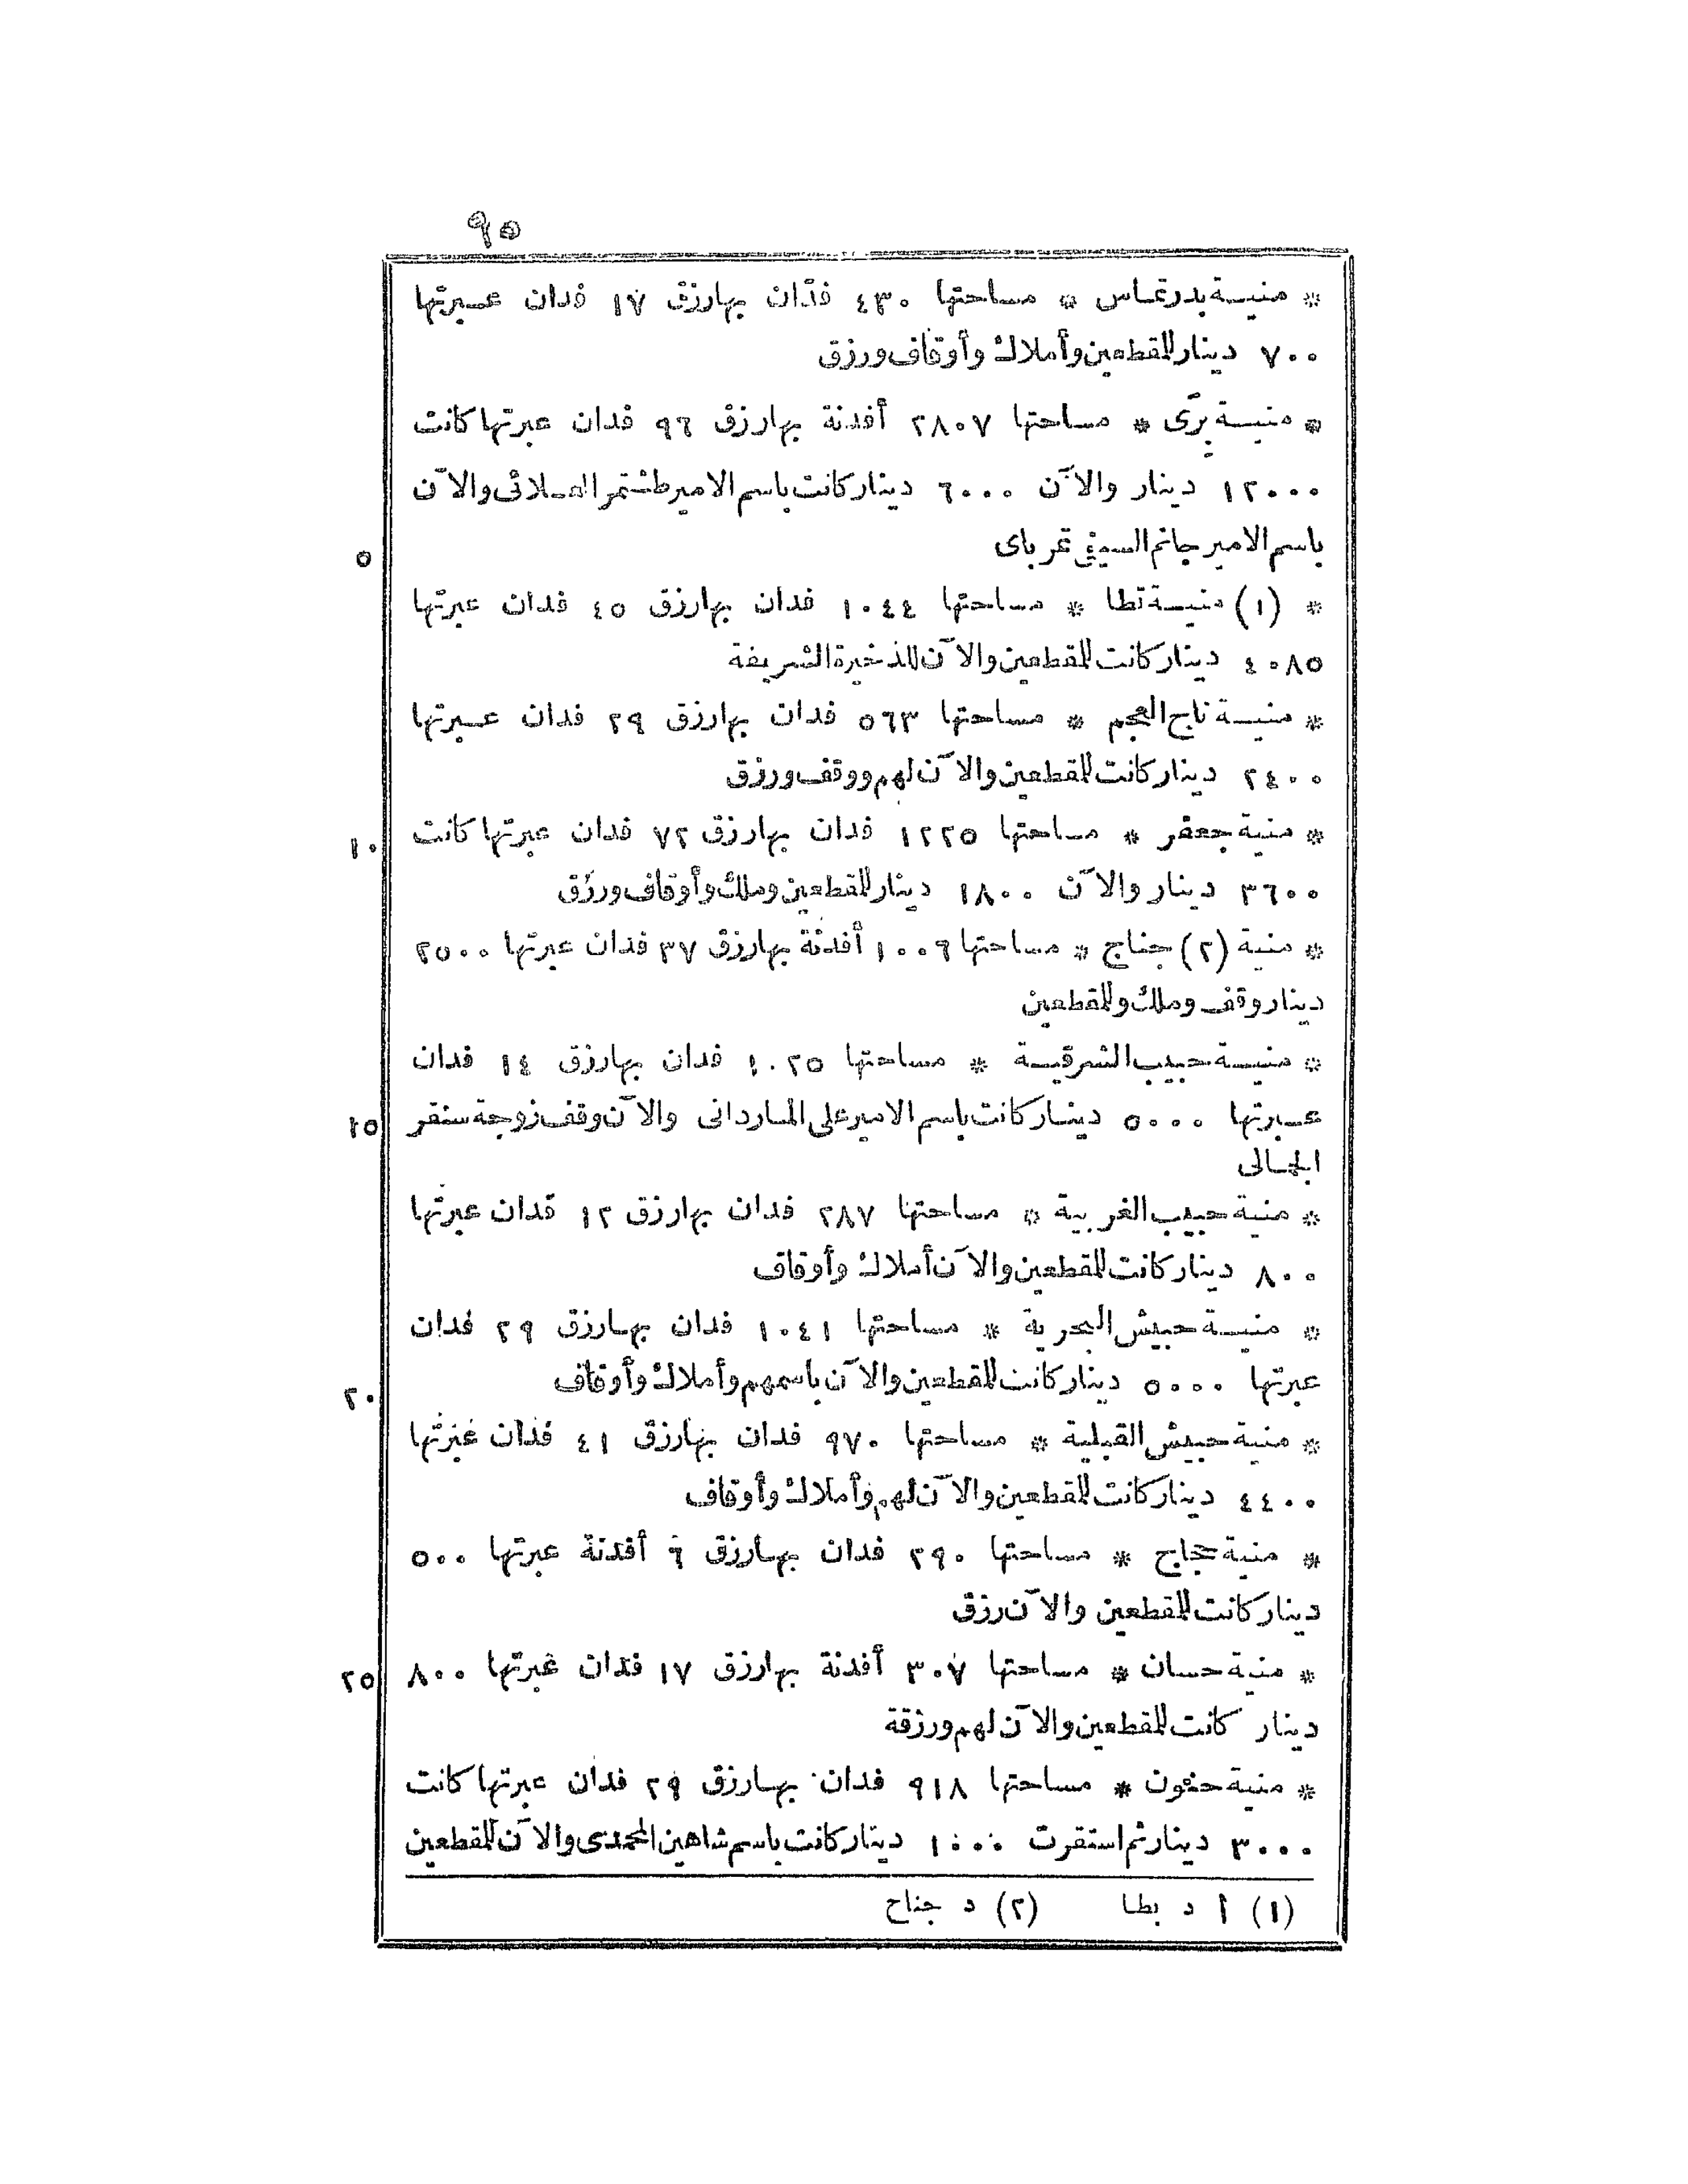 ٩٥
* منيـة بدرتماس * مساحتها ٤٣٠ فدّان بها رزق ١٧ فدان عـبرتها
٧٠٠ دينار للمقطعين وأملاك وأوقاف ورزق
* منيـة يزّى * مساحتها ٢٨٠٧ أفدنة بها رزق ٩٦ فدان عبرتها كانت
١٢٠٠٠ دينار والآن ٦٠٠٠ دينار كانت باسم الامير طشتمر العـلائى والآن
٥
باسم الامير جانم السيفى تمرباى
* (١) منيـة تطا * مساحتها ١٠٤٤ فدان بها رزق ٤٥ فدان عبرتها
٤٠٨٥ دينار كانت للمقطعين والآن للذخيرة الشريفة
* منيـة تاج العجم * مساحتها ٥٦٣ فدان بها رزق ٢٩ فدان عـبرتها
٢٤٠٠ دينار كانت للمقطعين والآن لهم ووقف ورزق
١٠
* منية جعفر * مساحتها ١٢٢٥ فدان بها رزق ٧٢ فدان عبرتها كانت
٣٦٠٠ دينار والآن ١٨٠٠ دينار للمقطعين وملك وأوقاف ورزق
* منية (٢) جناج * مساحتها ١٠٠٦ أفدنة بها رزق ٣٧ فدان عبرتها ٢٥٠٠
دينار وقف وملك وللمقطعين
* منيـة حبيب الشرقيـة * مساحتها ١٠٢٥ فدان بها رزق ١٤ فدان
١٥
عـبرتها ٥٠٠٠ دينـار كانت باسم الامير على المـاردانى والآن وقف زوجة سنقر
الجمـالى
* منية حبيب الغربية * مساحتها ٢٨٧ فدان بها رزق ١٢ فدان عبرتها
٨٠٠ دينار كانت للمقطعين والآن أملاك وأوقاف
* منيـة حبيش البحرية * مساحتها ١٠٤١ فدان بهـا رزق ٢٩ فدان
٢٠
عبرتها ٥٠٠٠ دينار كانت للمقطعين والآن باسمهم وأملاك وأوقاف
* منية حبيش القبلية * مساحتها ٩٧٠ فدان بها رزق ٤١ فدان عبرتها
٤٤٠٠ دينار كانت للمقطعين والآن لهم وأملاك وأوقاف
* منية حجاج * مساحتها ٢٩٠ فدان بهـا رزق ٦ أفدنة عبرتها ٥٠٠
دينار كانت للمقطعين والآن رزق
٢٥
* منية حسان * مساحتها ٣٠٧ أفدنة بها رزق ١٧ فدان عبرتها ٨٠٠
دينار كانت للمقطعين والآن لهم ورزقة
* منية حفون * مساحتها ٩١٨ فدان بهـا رزق ٢٩ فدان عبرتها كانت
٣٠٠٠ دينار ثم استقرت ١٠٠٠ دينار كانت باسم شاهين المحمدى والآن للمقطعين
(١) أ د بطا (٢) د جناح